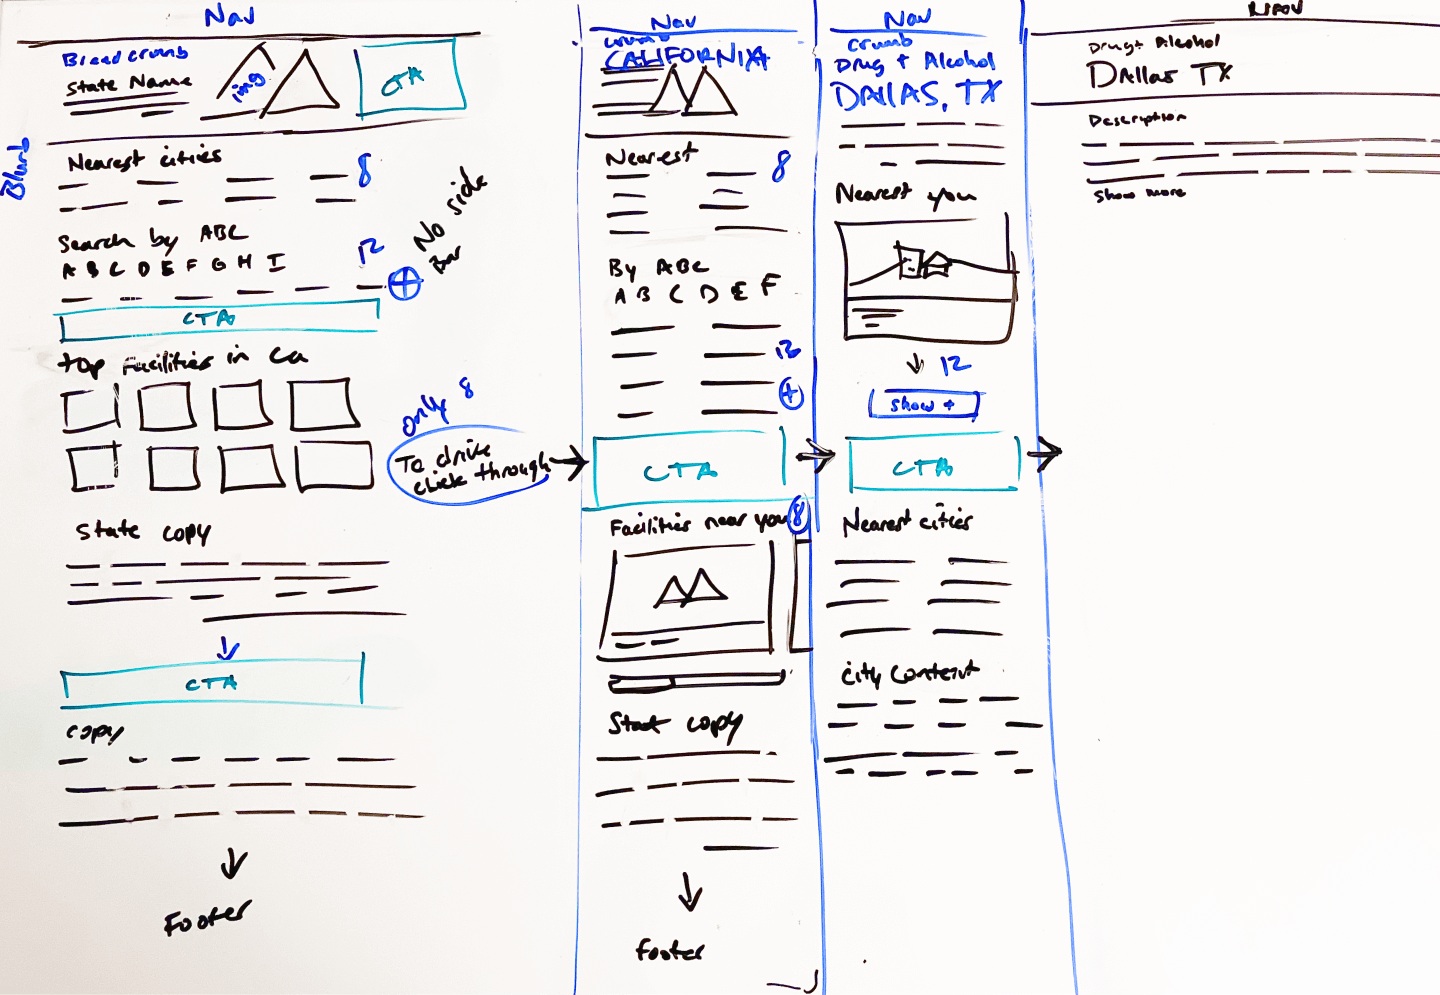 Nav
Breadcrumb
State Name
img
CTA
Blurb
Nearest cities
8
Search by ABC
A B C D E F G H I
12
+
No side
Bar
CTA
top facilities in Ca
only 8
To drive
click through
State copy
CTA
copy
Footer
Nav
crumb
CALIFORNIA
Nearest
8
By ABC
A B C D E F
12
+
CTA
Facilities near you
8
State copy
footer
Nav
crumb
Drug + Alcohol
DALLAS, TX
Nearest you
12
show +
CTA
Nearest cities
city content
Drug + Alcohol
Dallas TX
Description
Show more